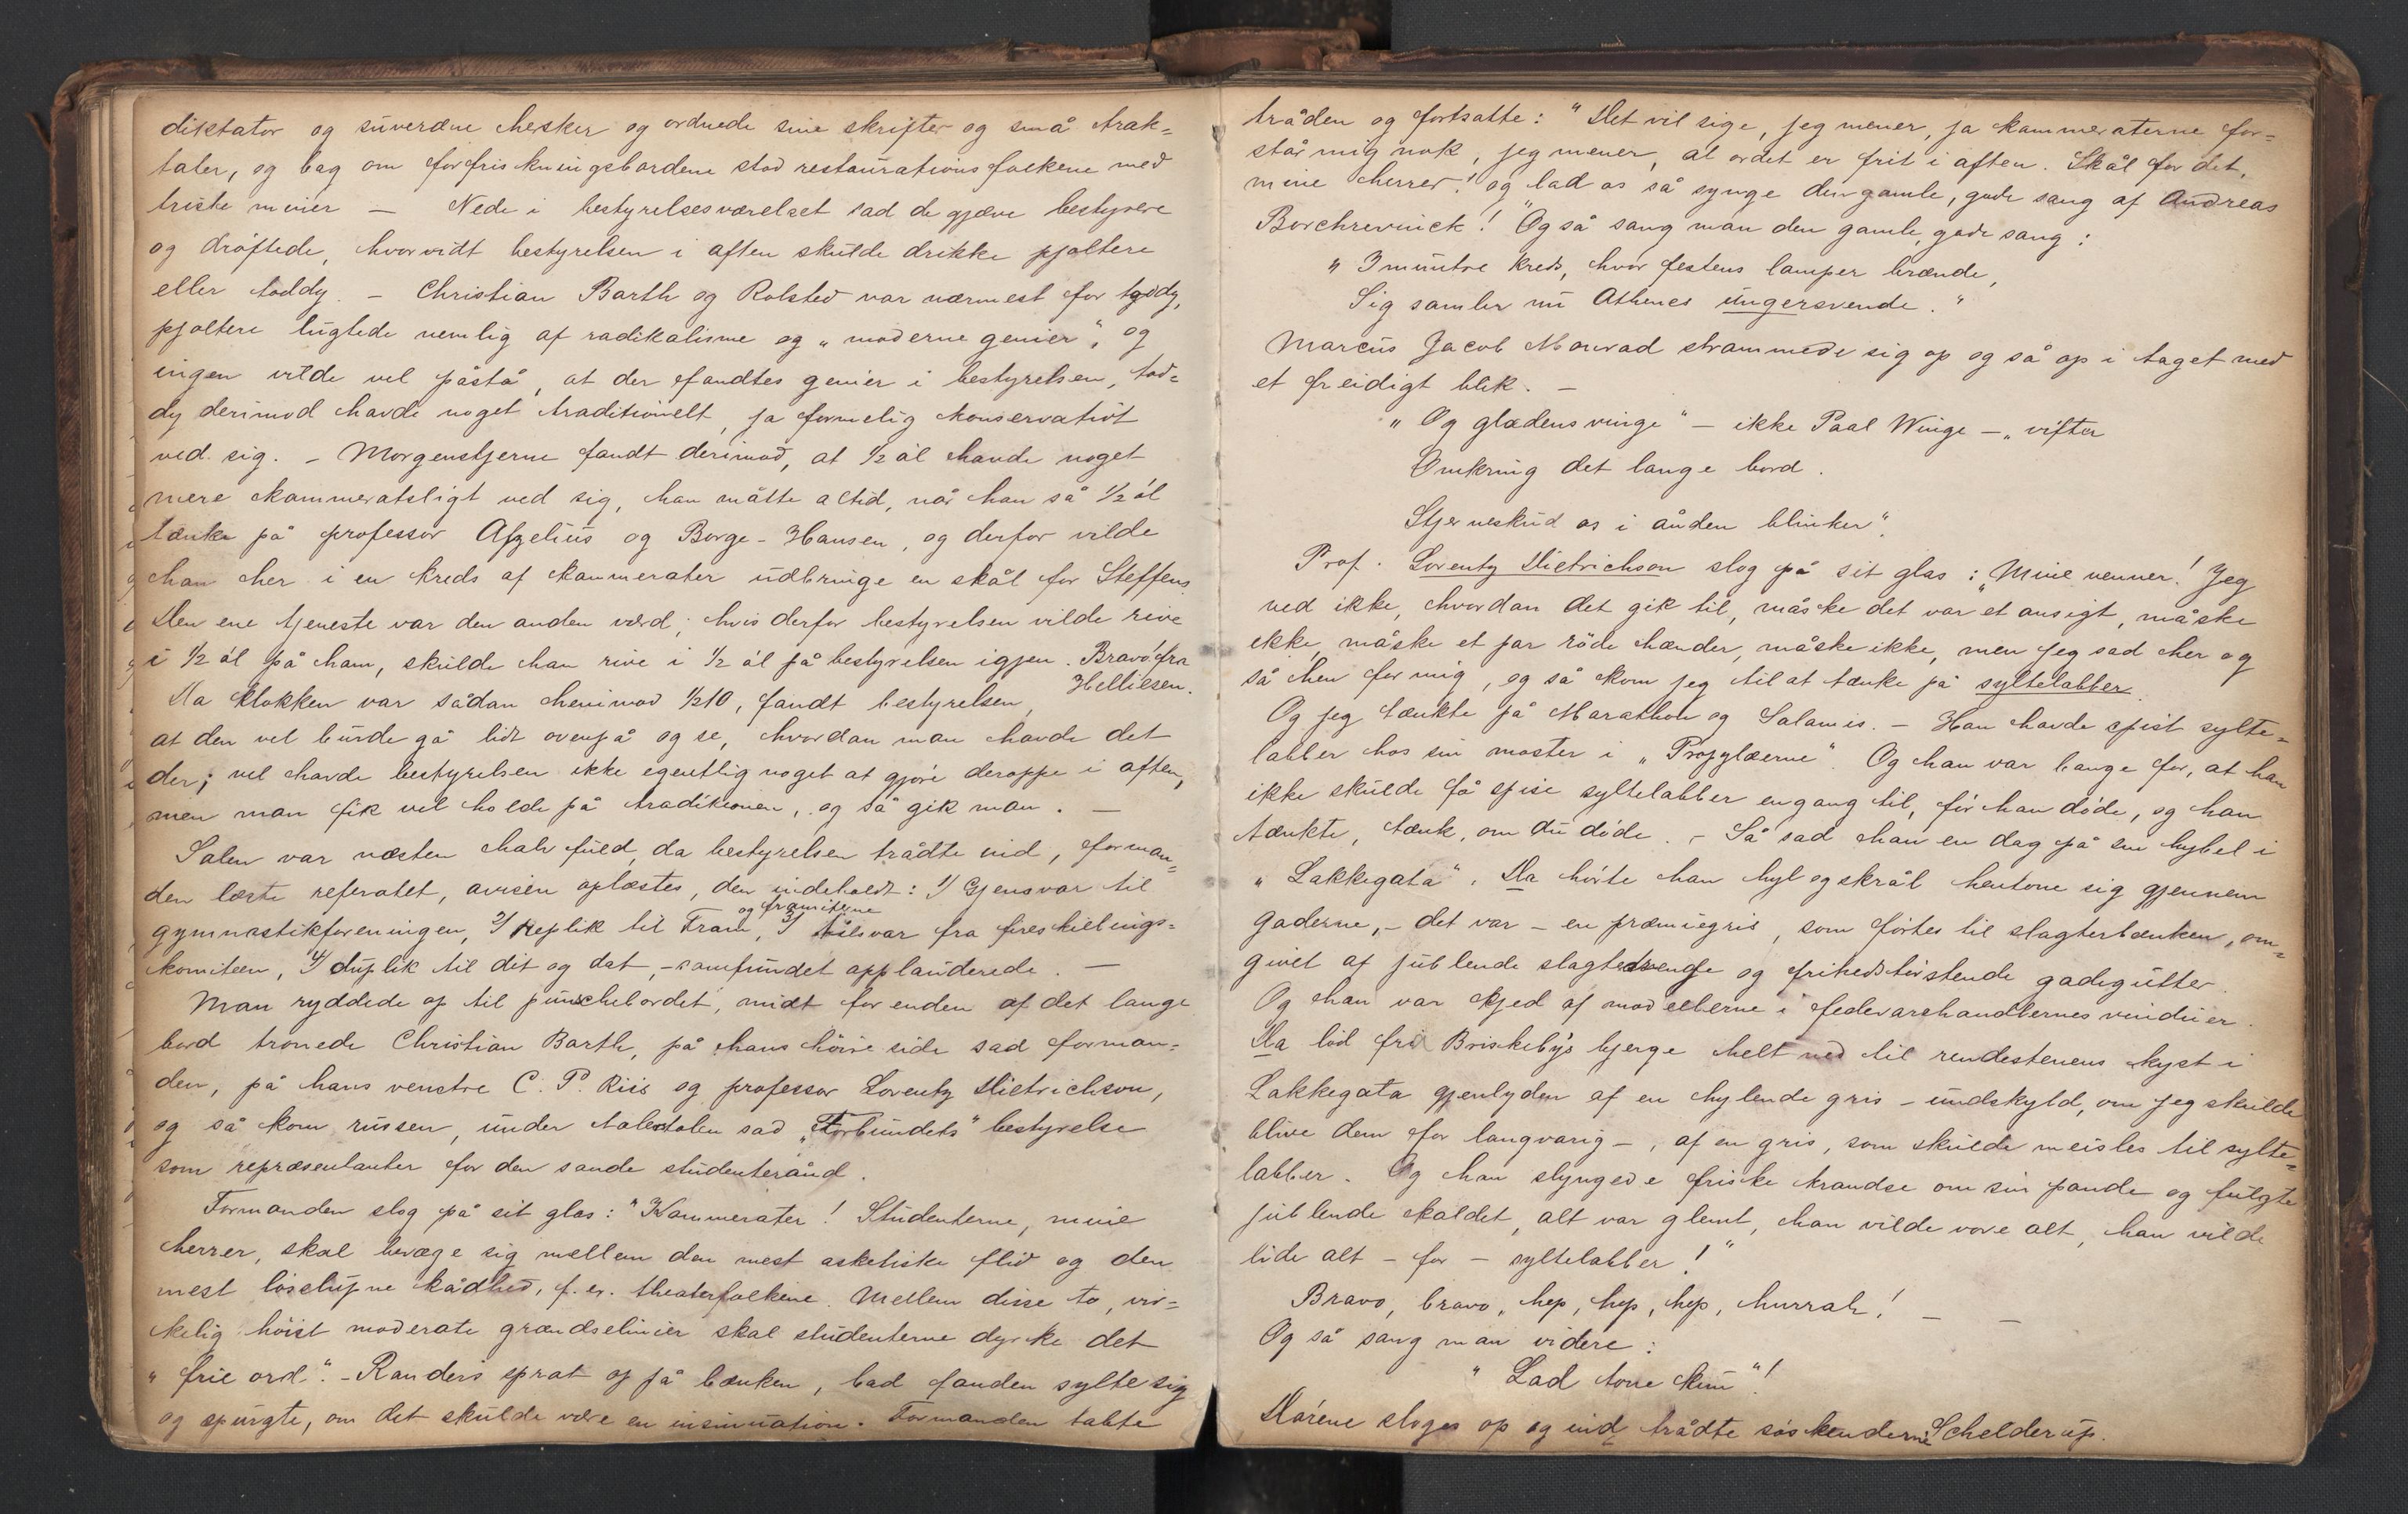 diktator og suveræne hersker og ordnede sine skrifter og små trak=
tater, og bag om forfriskningsbordene stod restaurationsfolkene med
triste miner — Nede i bestyrelsesværelset sad de gjæve bestyrere
og drøftede, hvorvidt bestyrelsen i aften skulde drikke pjoltere
eller toddy. – Christian Barth og Rolsted var nærmest for toddy,
pjoltere lugtede nemlig af radikalisme og „moderne genier“, og
ingen vilde vel påstå, at der fandtes genier i bestyrelsen, tod=
dy derimod havde noget traditionelt, ja formelig konservativt
ved sig. – Morgenstjerne fandt derimod, at ½ øl havde noget
mere kammeratsligt ved sig, han måtte altid, når han så ½ øl
tænke på professor Afzelius og Borge-Hansen, og derfor vilde
han her i en kreds af kammerater udbringe en skål for Steffens.
Den ene tjeneste var den anden værd; hvis derfor bestyrelsen vilde rive
i ½ øl på ham, skulde han rive i ½ øl på bestyrelsen igjen. Bravo fra
Helliesen.
Da klokken var sådan henimod ½10, fandt bestyrelsen,
at den vel burde gå lidt ovenpå og se, hvordan man havde det
der; vel havde bestyrelsen ikke egentlig noget at gjøre deroppe i aften,
men man fik vel holde på traditionen, og så gik man. —
Salen var næsten halv fuld, da bestyrelsen trådte ind, forman=
den læste referatet, avisen oplæstes, den indeholdt: 1) Gjensvar til
og framiterne
gymnastikforeningen, 2) Replik til Fram, 3) tilsvar fra fireskillings=
komiteen, 4) duplik til dit og dat, – samfundet applauderede. —
Man ryddede op til punschebordet, midt for enden af det lange
bord tronede Christian Barth, på hans høire side sad forman=
den, på hans venstre C. P. Riis og professor Lorentz Dietrichson,
og så kom russen, under talerstolen sad „Forbundets“ bestyrelse
som repræsentanter for den sande studenterånd.
Formanden slog på sit glas: “Kammerater! Studenterne, mine
herrer, skal bevæge sig mellem den mest asketiske flid og den
mest løsslupne kådhed, f. ex. theaterfolkene. Mellem disse to, vir=
kelig høist moderate grændselinier skal studenterne dyrke det
“frie ord”. – Randers sprat op på bænken, bad fanden sylte sig
og spurgte, om det skulde være en insinuation. Formanden tabte
tråden og fortsatte: “Det vil sige, jeg mener, ja kammeraterne for=
står mig nok, jeg mener, at ordet er frit i aften. Skål for det,
mine herrer! og lad os så synge den gamle, gode sang af Andreas
Borchrevinck!” Og så sang man den gamle, gode sang:
“I muntre kreds, hvor festens lamper brænde,
Sig samler nu Athenes ungersvende.”
Marcus Jacob Monrad strammede sig op og så op i taget med
et freidigt blik. —
“Og glædens vinge” – ikke Paal Winge – „vifter
Omkring det lange bord.
Stjerneskud os i ånden blinker”.
Prof. Lorentz Dietrichson slog på sit glas: “Mine venner! Jeg
ved ikke, hvordan det gik til, måske det var et ansigt, måske
ikke, måske et par røde hænder, måske ikke, men jeg sad her og
så hen for mig, og så kom jeg til at tænke på syltelabber.
Og jeg tænkte på Marathon og Salamis. – Han havde spist sylte=
labber hos sin moster i „Propylæerne“. Og han var bange for, at han
ikke skulde få spise syltelabber engang til, før han døde, og han
tænkte, tænk, om du døde. – Så sad han en dag på sin hybel i
“Lakkegata”. Da hørte han hyl og skrål hentone sig gjennem
gaderne, – det var – en præmiegris, som førtes til slagterbænken, om=
givet af jublende slagtersvende og frihedstørstende gadegutter.
Og han var kjed af modellerne i fedevarehandlernes vinduer.
Da lød fra Briskeby's bjerge helt ned til rendestenens kyst i
Lakkegata gjenlyden af en hylende gris – undskyld, om jeg skulde
blive dem for langvarig –, af en gris, som skulde meisles til sylte=
labber. Og han slyngede friske krandse om sin pande og fulgte
jublende kaldet, alt var glemt, han vilde vove alt, han vilde
lide alt – for – syltelabber!”
Bravo, bravo, hep, hep, hep, hurrah! — —
Og så sang man videre:
“Lad torre kun”!
Dørene sloges op og ind trådte søskenderne Schelderup.